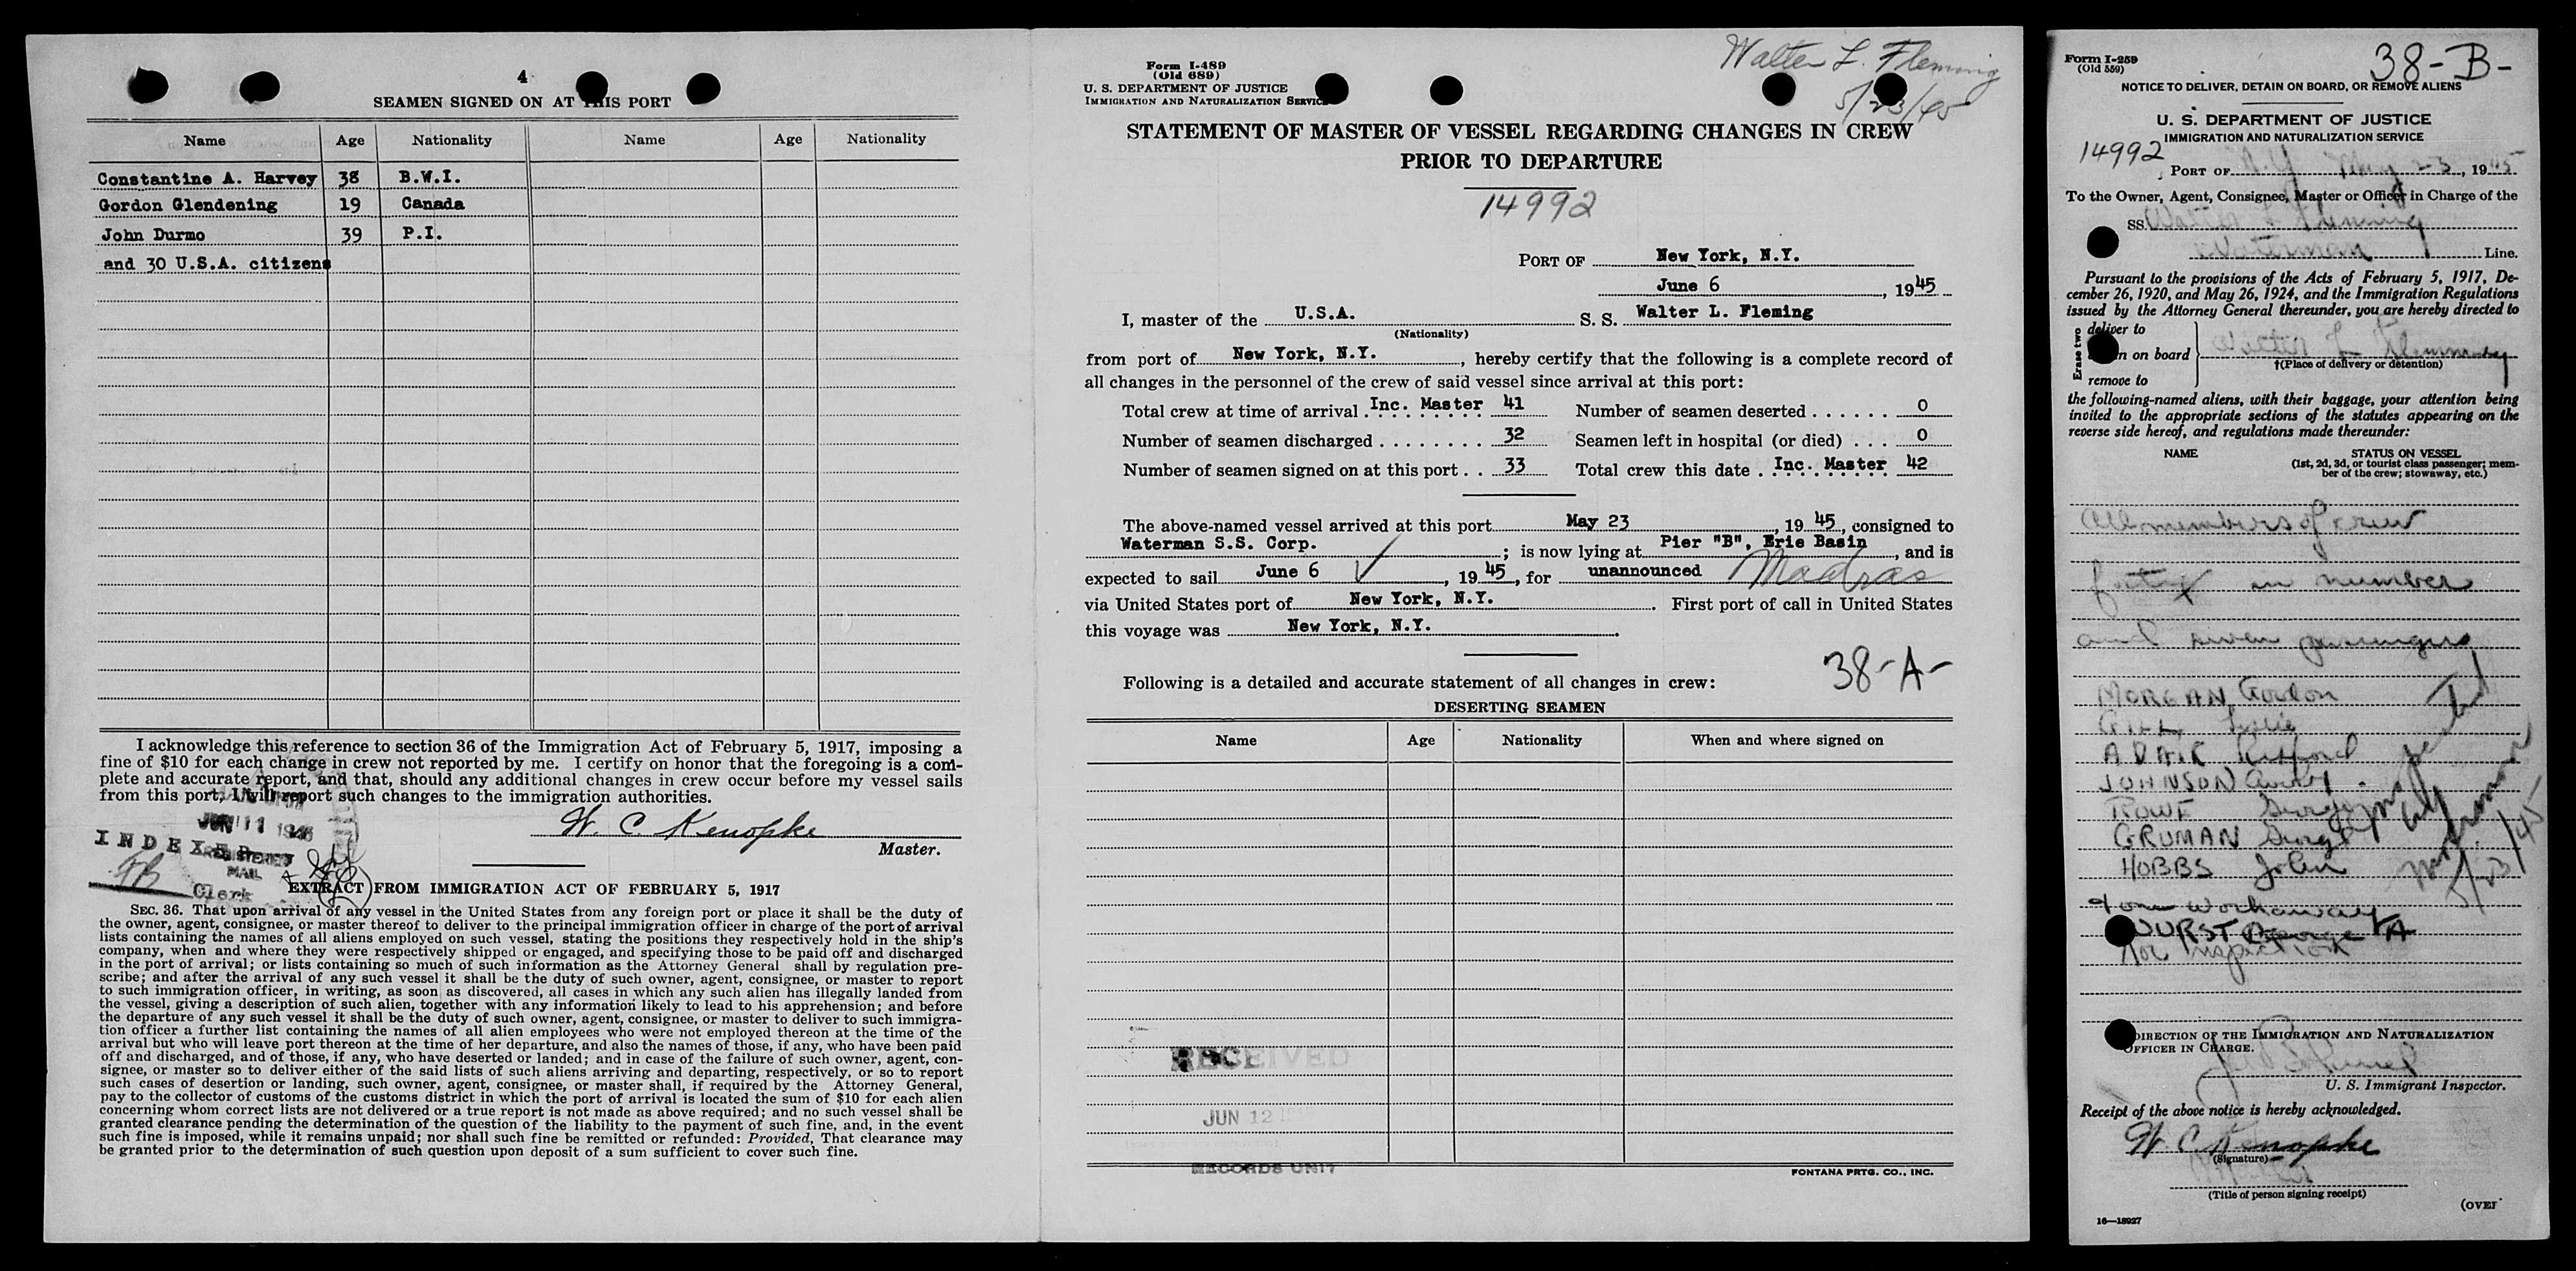 4
SEAMEN SIGNED ON AT THIS PORT
Name Age Nationality Name Age Nationality
Constantine A. Harvey 38 B.W.I.
Gordon Glendening 19 Canada
John Durmo 39 P.I.
and 30 U.S.A. citizens
I acknowledge this reference to section 36 of the Immigration Act of February 5, 1917, imposing a
fine of $10 for each change in crew not reported by me. I certify on honor that the foregoing is a com-
plete and accurate report, and that, should any additional changes in crew occur before my vessel sails
from this port, I will report such changes to the immigration authorities.
W. C. Kenopke
Master.
JUN 11
INDEXED
REGISTERED
MAIL
Clerk
EXTRACT FROM IMMIGRATION ACT OF FEBRUARY 5, 1917
SEC. 36. That upon arrival of any vessel in the United States from any foreign port or place it shall be the duty of
the owner, agent, consignee, or master thereof to deliver to the principal immigration officer in charge of the port of arrival
lists containing the names of all aliens employed on such vessel, stating the positions they respectively hold in the ship's
company, when and where they were respectively shipped or engaged, and specifying those to be paid off and discharged
in the port of arrival; or lists containing so much of such information as the Attorney General shall by regulation pre-
scribe; and after the arrival of any such vessel it shall be the duty of such owner, agent, consignee, or master to report
to such immigration officer, in writing, as soon as discovered, all cases in which any such alien has illegally landed from
the vessel, giving a description of such alien, together with any information likely to lead to his apprehension; and before
the departure of any such vessel it shall be the duty of such owner, agent, consignee, or master to deliver to such immigra-
tion officer a further list containing the names of all alien employees who were not employed thereon at the time of the
arrival but who will leave port thereon at the time of her departure, and also the names of those, if any, who have been paid
off and discharged, and of those, if any, who have deserted or landed; and in case of the failure of such owner, agent, con-
signee, or master so to deliver either of the said lists of such aliens arriving and departing, respectively, or so to report
such cases of desertion or landing, such owner, agent, consignee, or master shall, if required by the Attorney General,
pay to the collector of customs of the customs district in which the port of arrival is located the sum of $10 for each alien
concerning whom correct lists are not delivered or a true report is not made as above required; and no such vessel shall be
granted clearance pending the determination of the question of the liability to the payment of such fine, and, in the event
such fine is imposed, while it remains unpaid; nor shall such fine be remitted or refunded: Provided, That clearance may
be granted prior to the determination of such question upon deposit of a sum sufficient to cover such fine.
Form I-489
(Old 689)
U. S. DEPARTMENT OF JUSTICE
IMMIGRATION AND NATURALIZATION SERVICE
Walter L. Fleming
5/23/45
STATEMENT OF MASTER OF VESSEL REGARDING CHANGES IN CREW
PRIOR TO DEPARTURE
14992
PORT OF New York, N.Y.
June 6, 1945
I, master of the U.S.A. S. S. Walter L. Fleming
(Nationality)
from port of New York, N.Y., hereby certify that the following is a complete record of
all changes in the personnel of the crew of said vessel since arrival at this port:
Total crew at time of arrival Inc. Master 41 Number of seamen deserted 0
Number of seamen discharged 32 Seamen left in hospital (or died) 0
Number of seamen signed on at this port 33 Total crew this date Inc. Master 42
The above-named vessel arrived at this port May 23, 1945, consigned to
Waterman S.S. Corp.; is now lying at Pier "B", Erie Basin, and is
expected to sail June 6, 1945, for unannounced Madras
via United States port of New York, N.Y. First port of call in United States
this voyage was New York, N.Y.
38-A-
Following is a detailed and accurate statement of all changes in crew:
DESERTING SEAMEN
Name Age Nationality When and where signed on
RECEIVED
JUN 12
RECORDS UNIT
FONTANA PRTG. CO., INC.
Form I-259
(Old 559)
38-B-
NOTICE TO DELIVER, DETAIN ON BOARD, OR REMOVE ALIENS
U. S. DEPARTMENT OF JUSTICE
IMMIGRATION AND NATURALIZATION SERVICE
14992
PORT OF N.Y. May 23, 1945
To the Owner, Agent, Consignee, Master or Officer in Charge of the
SS. Walter L Fleming
Waterman Line.
Pursuant to the provisions of the Acts of February 5, 1917, De-
cember 26, 1920, and May 26, 1924, and the Immigration Regulations
issued by the Attorney General thereunder, you are hereby directed to
Erase two
deliver to
n on board Walter L Flemming
†(Place of delivery or detention)
remove to
the following-named aliens, with their baggage, your attention being
invited to the appropriate sections of the statutes appearing on the
reverse side hereof, and regulations made thereunder:
NAME STATUS ON VESSEL
(1st, 2d, 3d, or tourist class passenger; mem-
ber of the crew; stowaway, etc.)
All members of crew
forty in number
and seven passengers
MORGAN, Gordon
GILL
ADAIR
JOHNSON
ROWE George
GRUMAN George
HOBBS John
5/23/45
+ one workaway
WURST George A
for inspection
DIRECTION OF THE IMMIGRATION AND NATURALIZATION
OFFICER IN CHARGE.
U. S. Immigrant Inspector.
Receipt of the above notice is hereby acknowledged.
W. C. Kenopke
(Signature)
(Title of person signing receipt)
(OVER
16—18927